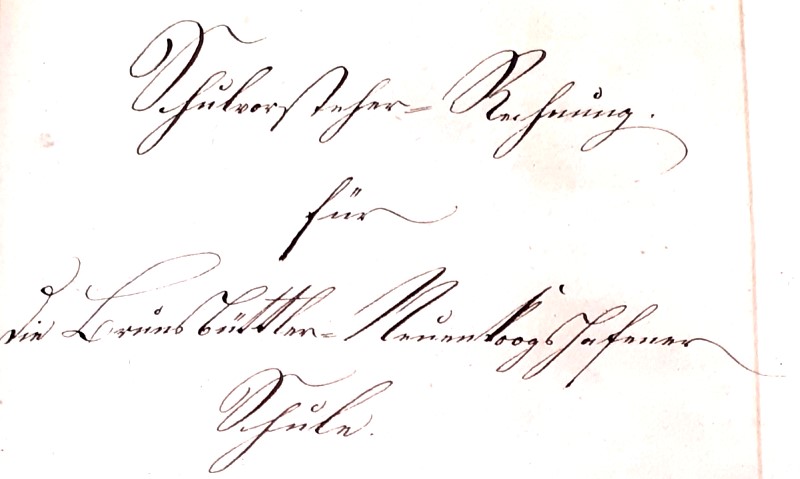 Schulvorsteher-Rechnung.
für
die Brunsbüttler-Neuenkoogshafener
Schule.